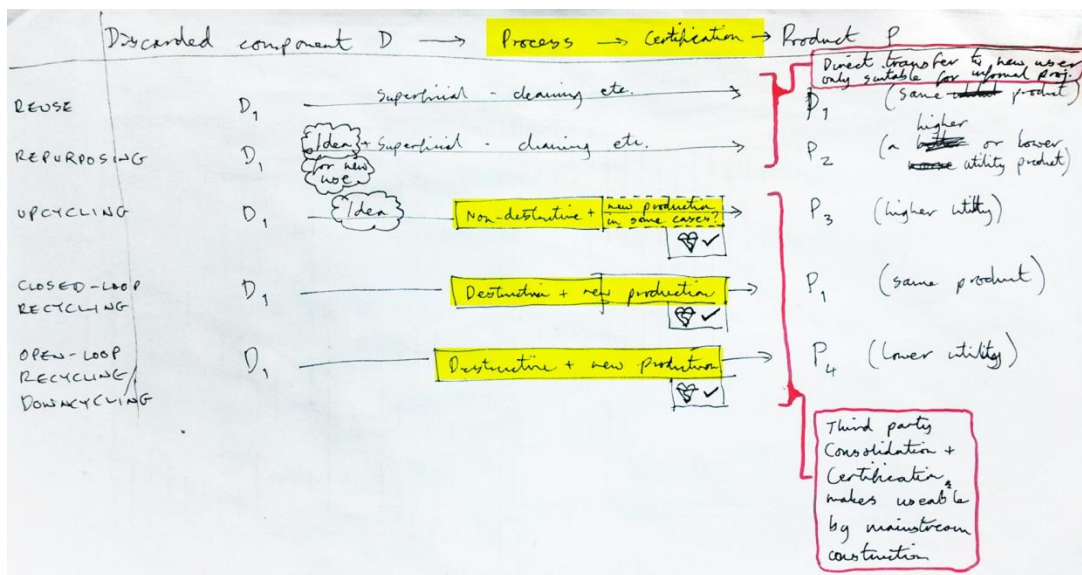 Discarded component D → Process → Certification → Product P
Direct transfer to new user
only suitable for informal proj.
REUSE D1 Superficial - cleaning etc. P1 (same product)
REPURPOSING D1 Idea for new use + Superficial - cleaning etc. P2 (a higher or lower utility product)
UPCYCLING D1 Idea Non-destructive + new production in some cases? ✓ P3 (higher utility)
CLOSED-LOOP
RECYCLING D1 Destructive + new production ✓ P1 (same product)
OPEN-LOOP
RECYCLING/ D1 Destructive + new production ✓ P4 (lower utility)
DOWNCYCLING
Third party
Consolidation +
Certification
makes useable
by mainstream
construction